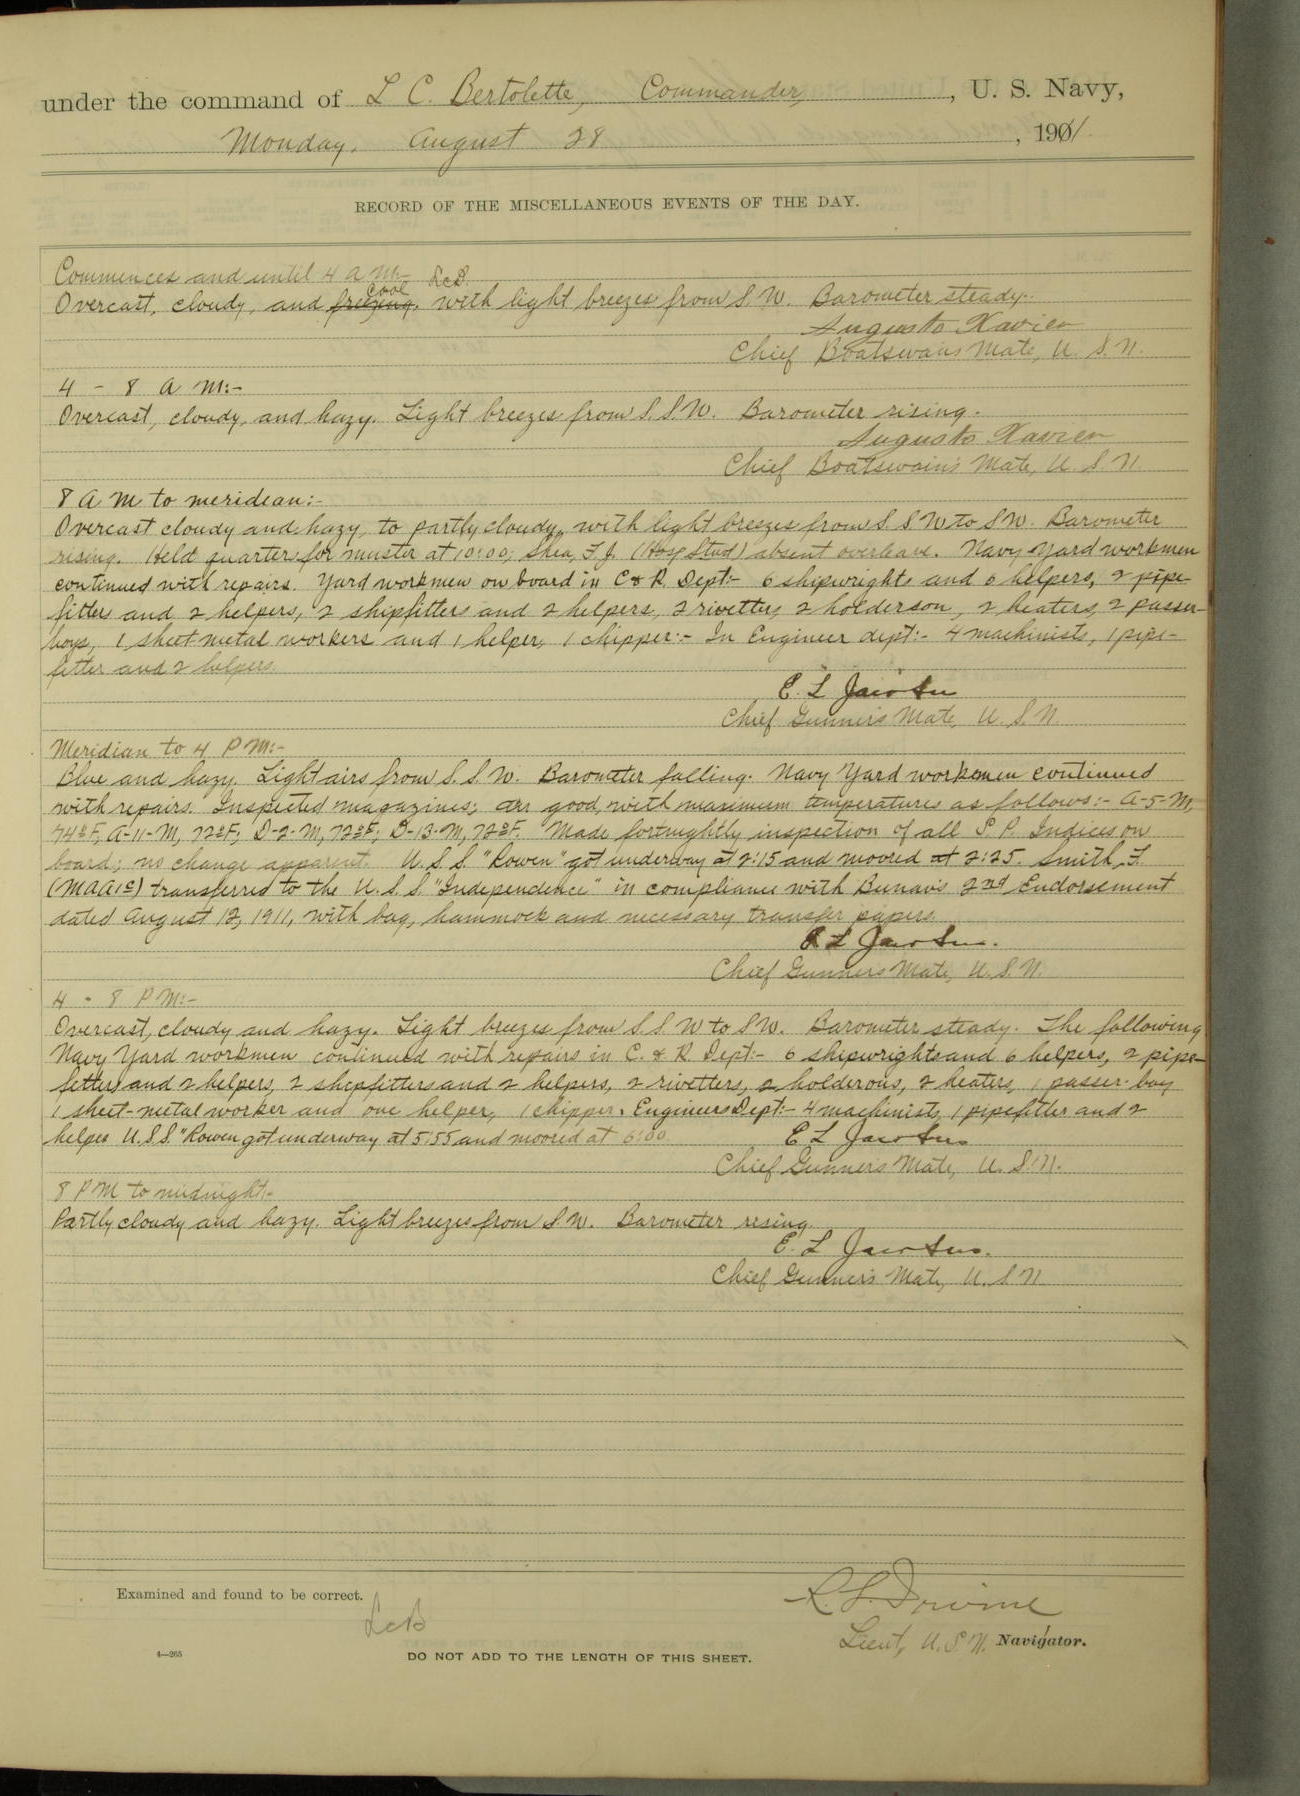 under the command of L C. Bertolette, Commander, U. S. Navy,
Monday, August 28, 1901
RECORD OF THE MISCELLANEOUS EVENTS OF THE DAY.
Commences and until 4 a m:- LcB.
cool
Overcast, cloudy, and freezing, with light breezes from S.W. Barometer steady.
Augusto Xavier
Chief Boatswains Mate, U. S. N.
4 - 8 a m:-
Overcast, cloudy, and hazy. Light breezes from S.S.W. Barometer rising.
Augusto Xavier
Chief Boatswain's Mate, U. S. N.
8 a m to meridian:-
Overcast cloudy and hazy, to partly cloudy, with light breezes from S.S.W to S.W. Barometer
rising. Held quarters for muster at 10:00; Shea, F.J. (Hosp Stwd) absent overleave. Navy Yard workmen
continued with repairs. Yard workmen on board in C & R. Dept:- 6 shipwrights and 6 helpers, 2 pipe-
fitters and 2 helpers, 2 shipfitters and 2 helpers, 2 rivetters, 2 holderson, 2 heaters, 2 passer-
boys, 1 sheet metal workers and 1 helper, 1 chipper:- In Engineer dept:- 4 machinists, 1 pipe-
fitter and 2 helpers.
E. L Jacobsen
Chief Gunner's Mate, U. S. N.
Meridian to 4 P M:-
Blue and hazy. Light airs from S.S.W. Barometer falling. Navy Yard workmen continued
with repairs. Inspected magazines; air good, with maximum temperatures as follows:- A-5-M,
74°F, A-11-M, 72°F; D-2-M, 72°F; D-13-M, 72°F. Made fortnightly inspection of all S. P. Indices on
board; no change apparent. U. S. S. "Rowen" got underway at 2:15 and moored at 2:25. Smith, F.
(MAA1c) transferred to the U. S. S. "Independence" in compliance with Bunav's 2nd Endorsement
dated August 12, 1911, with bag, hammock and necessary transfer papers.
E L Jacobsen.
Chief Gunners Mate, U. S. N.
4 - 8 P M:-
Overcast, cloudy and hazy. Light breezes from S.S.W to S.W. Barometer steady. The following
Navy Yard workmen continued with repairs in C. & R. Dept:- 6 shipwrights and 6 helpers, 2 pipe-
fitters and 2 helpers, 2 shipfitters and 2 helpers, 2 rivetters, 2 holderons, 2 heaters, 1 passer-boy
1 sheet-metal worker and one helper, 1 chipper. Engineers Dept:- 4 machinists, 1 pipefitter and 2
helpes U.S.S. "Rowen got underway at 5:55 and moored at 6:00. E L Jacobsen
Chief Gunner's Mate, U. S. N.
8 P M to midnight:-
Partly cloudy and hazy. Light breezes from S.W. Barometer rising.
E. L Jacobsen.
Chief Gunner's Mate, U. S. N
Examined and found to be correct.
LcB
R. L. Irvine
Lieut, U. S. N. Navigator.
4—265
DO NOT ADD TO THE LENGTH OF THIS SHEET.